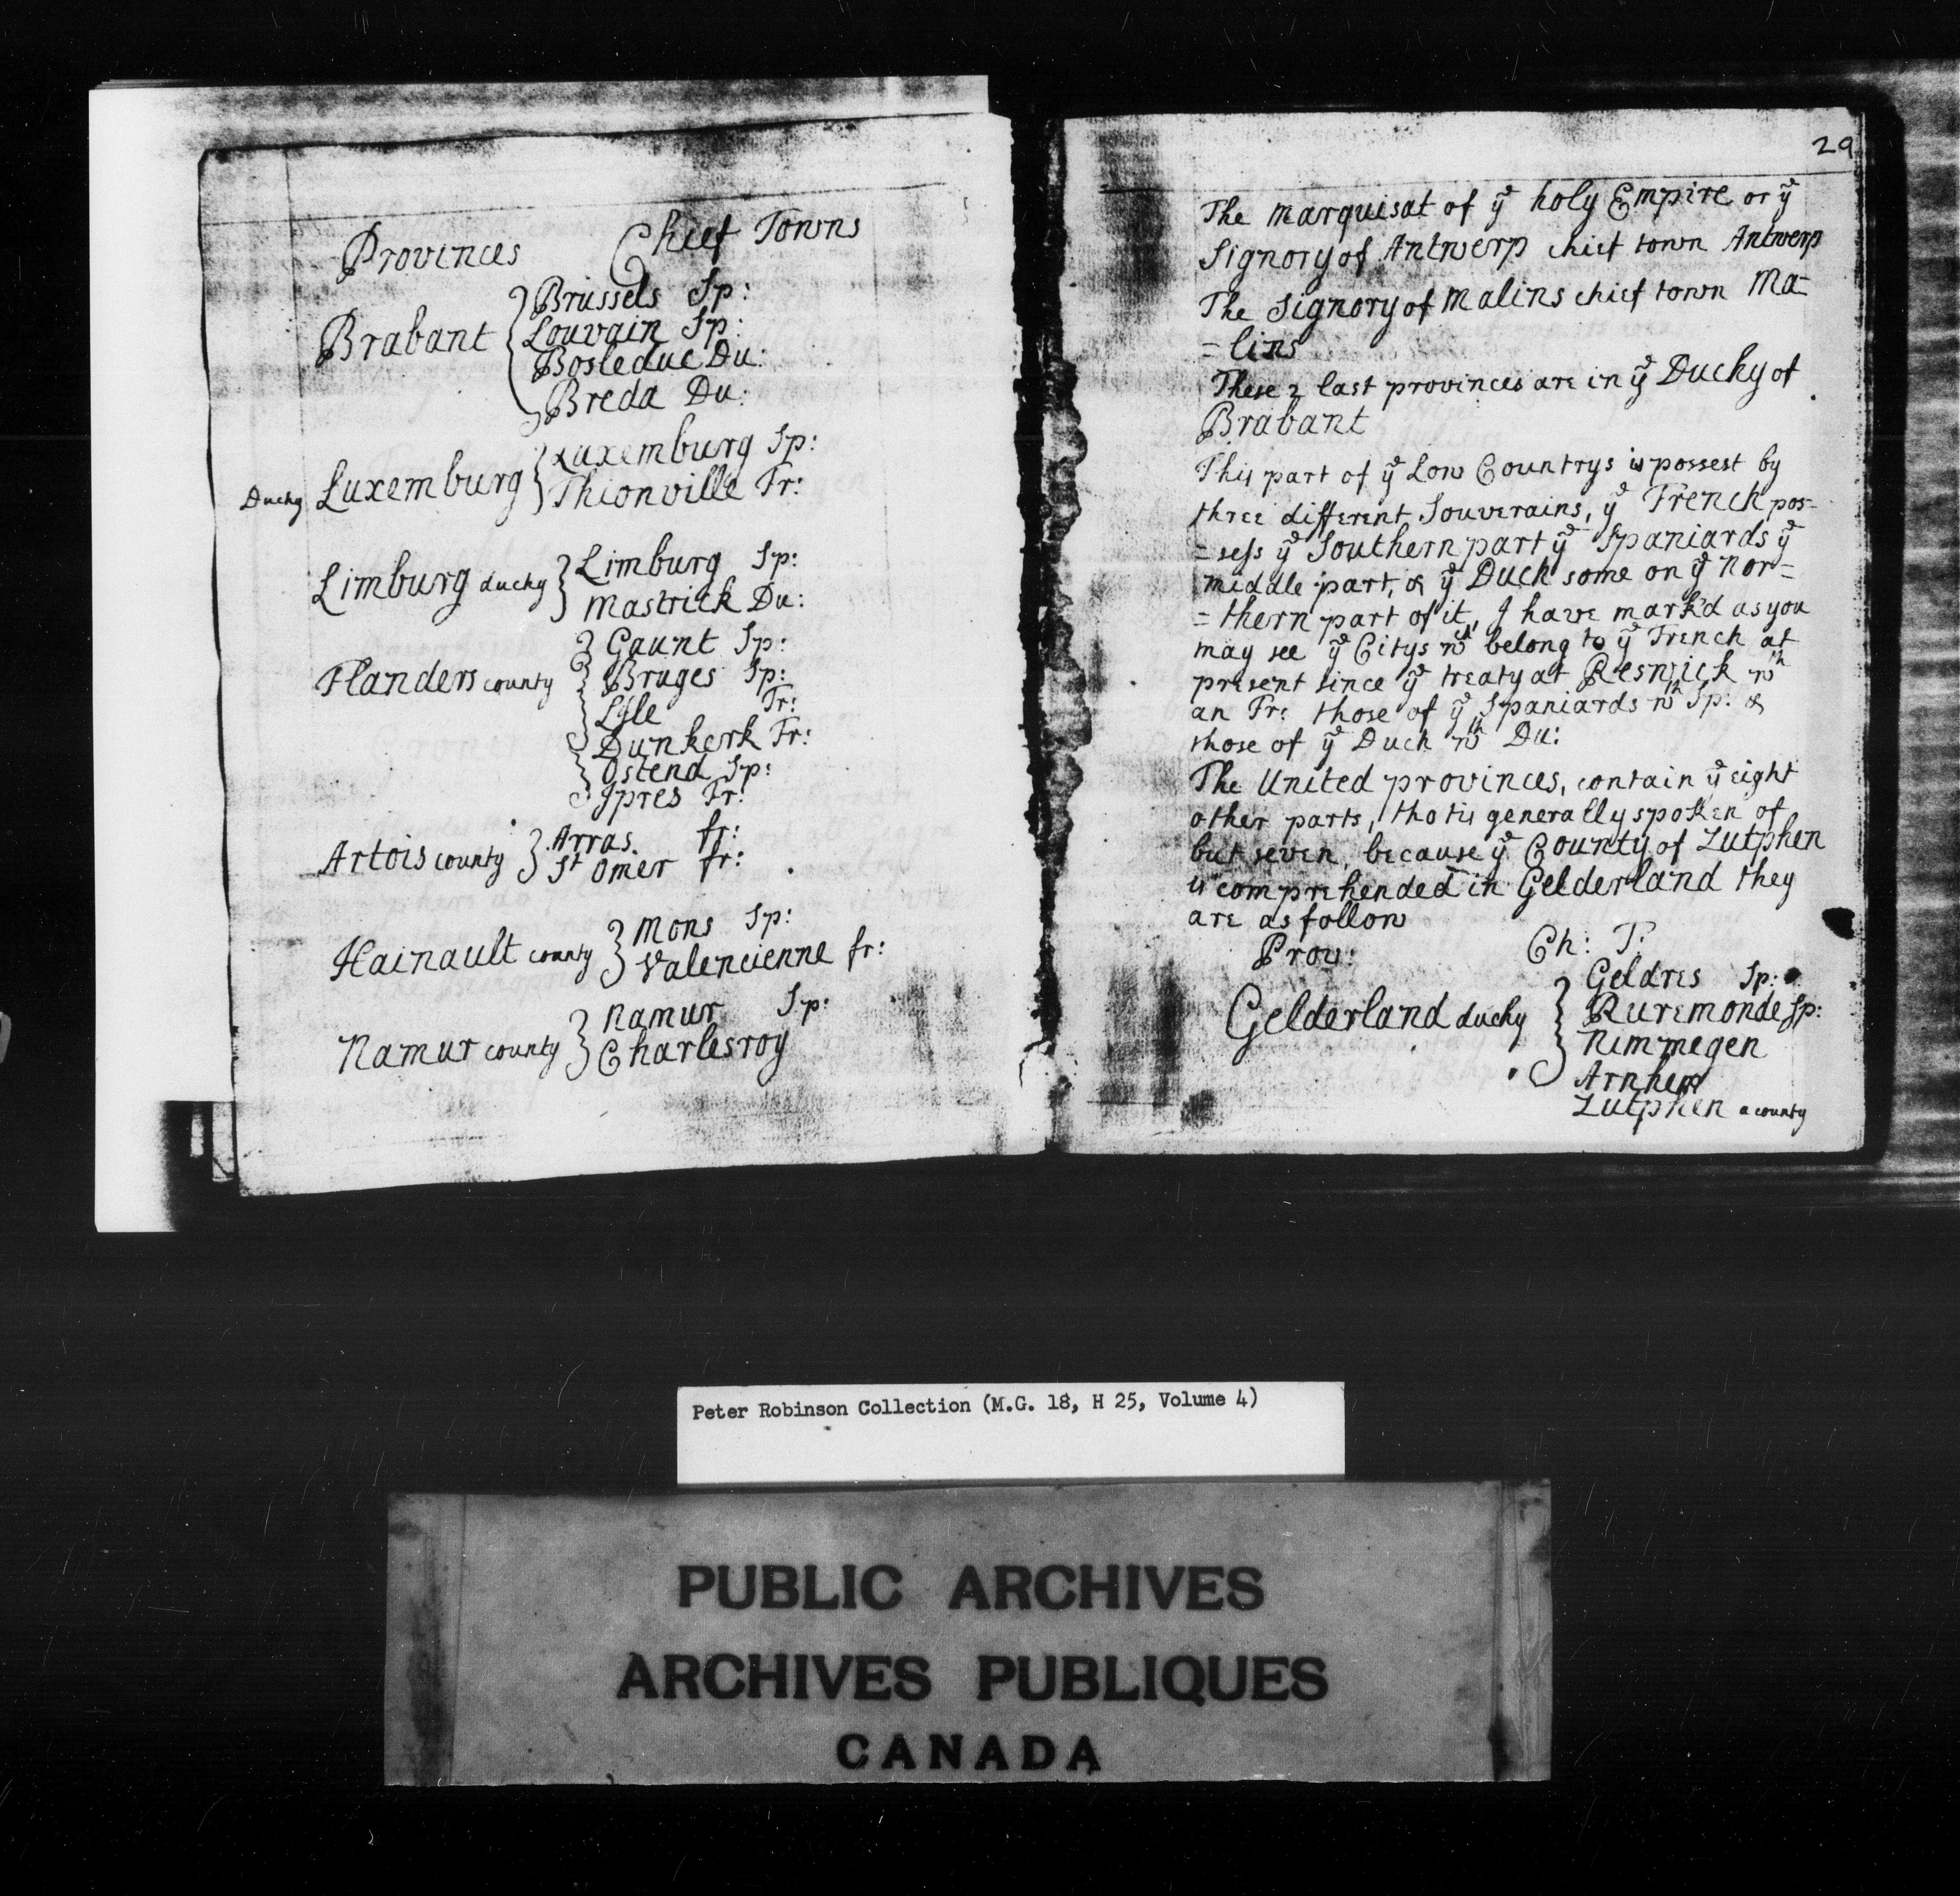 Provinces Chief Towns
Brabant { Brussels Sp:
Louvain Sp:
Bosleduc Du:
Breda Du:
Duchy Luxemburg } Luxemburg Sp:
Thionville Fr:
Limburg duchy } Limburg Sp:
Mastrick Du:
Flanders county } Gaunt Sp:
Bruges Sp:
Lisle Fr:
Dunkerk Fr:
Ostend Sp:
Ipres Fr:
Artois county } Arras. fr:
St Omer fr:
Hainault county } Mons Sp:
Valencienne fr:
Namur county } Namur Sp:
Charlesroy
29
The Marquisat of ye holy Empire or ye
Signory of Antwerp chief town Antwerp
The Signory of Malins chief town Ma=
=lins
These 2 last provinces are in ye Duchy of
Brabant
This part of ye Low Countrys is possest by
three different Souverains, ye French pos=
=sess ye Southern part ye Spaniards ye
middle part, & ye Duch some on ye Nor=
=thern part of it, I have mark'd as you
may see ye Citys wch belong to ye French at
present since ye treaty at Reswick wth
an Fr: those of ye Spaniards wth Sp: &
those of ye Duch wth Du:
The United provinces, contain ye eight
other parts, tho tis generally spoken of
but seven, because ye County of Zutphen
is comprehended in Gelderland they
are as follow
Prov: Ch: T:
Gelderland duchy } Geldres Sp:
Ruremonde Sp:
Nimmegen
Arnhem
Zutphen a county
Peter Robinson Collection (M.G. 18, H 25, Volume 4)
PUBLIC ARCHIVES
ARCHIVES PUBLIQUES
CANADA